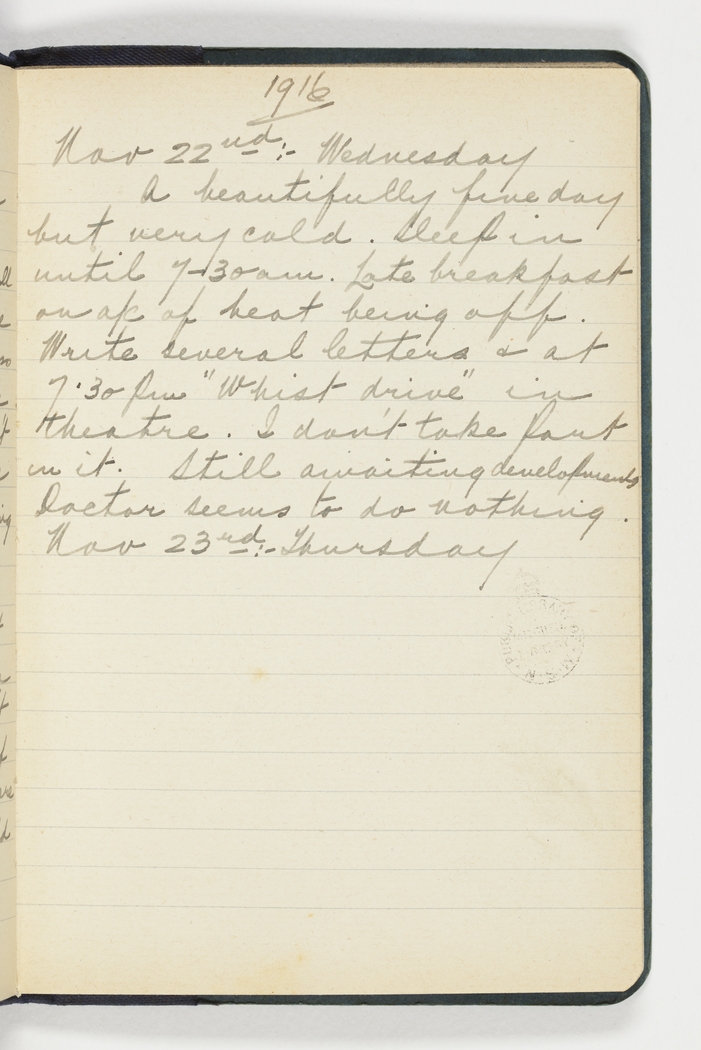 1916
Nov 22nd:- Wednesday
A beautifully fine day
but very cold. Sleep in
until 7-30 am. Late breakfast
on a/c of heat being off.
Write several letters & at
7.30 pm "Whist drive" in
theatre. I don't take part
in it. Still awaiting developments
Doctor seems to do nothing.
Nov 23rd:- Thursday